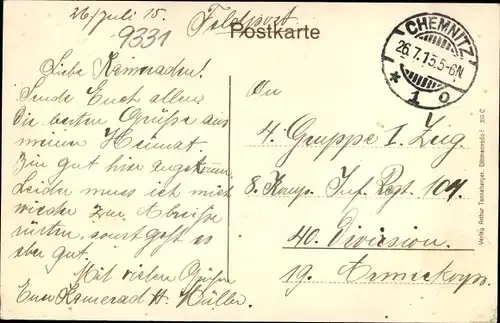 26/Juli 15. Feldpost
9331
Postkarte
CHEMNITZ
26.7.15.5-6N.
* 1 o
Liebe Kameraden!
Sende Euch allen
Die besten Grüße aus
meiner Heimat
Bin gut hier angekommen,
Leider muss ich mich
wieder zur Abreise
rüsten, sonst geht es
aber gut.
Mit vielen Grüßen
Euer Kamerad H Müller.
An
4. Gruppe I. Zug
8. Komp. Inf. Regt. 104.
40. Division.
19. Armeekorps.
Verlag Arthur Tanneberger, Dittmannsdorf